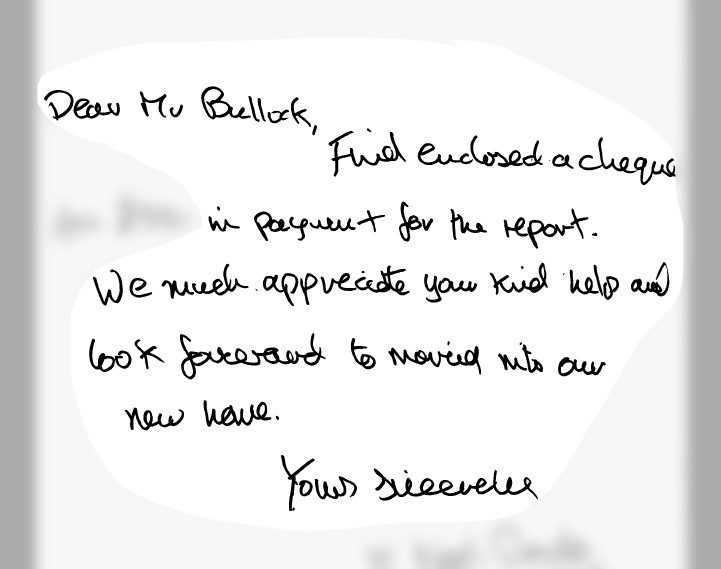 Dear Mr Bullock,
Find enclosed a cheque
in payment for the report.
We much appreciate your kind help and
look forward to moving into our
new home.
Yours sincerely